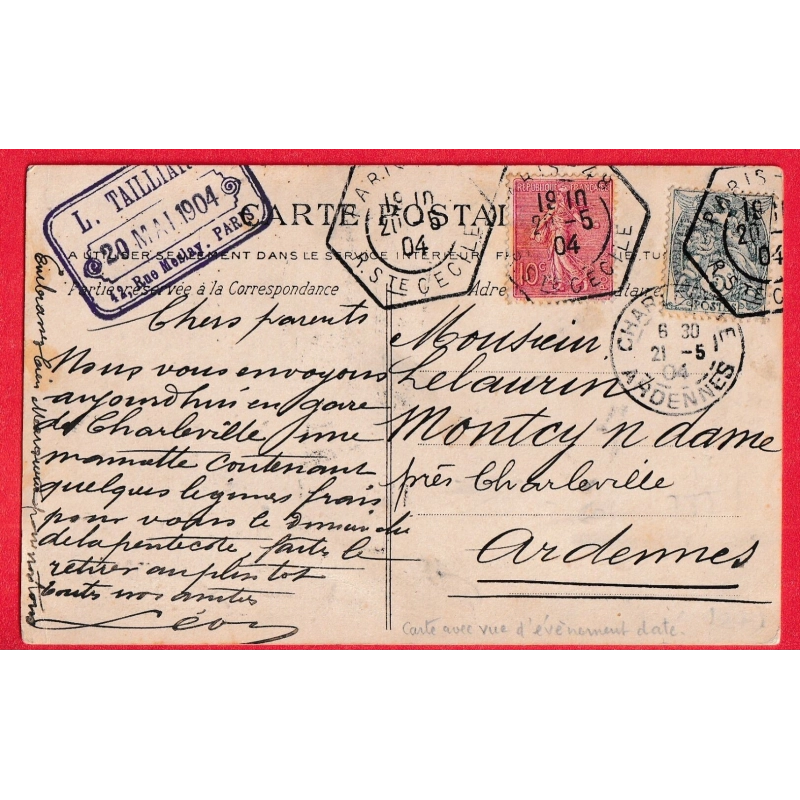 L. TAILLIAR
20 MAI 1904
12, Rue Meslay, PARIS
CARTE POSTAL
A UTILISER SEULEMENT DANS LE SERVICE INTERIEUR
Partie réservée à la Correspondance
Adre
PARIS
19 10
20 5
04
R. STE CECILE
REPUBLIQUE FRANÇAISE
10c
PARIS
19 10
20 -5
04
STE CECILE
PARIS
19
20
04
R. STE
CHARLEVILLE
6 30
21 -5
04
ARDENNES
Chers parents
Nous vous envoyons
aujourdhui en gare
de Charleville une
manette contenant
quelques légumes frais
pour vous le dimanche
de la pentecote, faites le
retirer au plus tot
toutes nos amitiés
Léon
Embrassez bien
Monsieur
Lelaurin
Montcy n dame
près Charleville
Ardennes
Carte avec vue d'évènement daté.